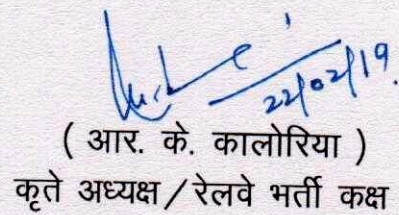 22/02/19
( आर. के. कालोरिया )
कृते अध्यक्ष/रेलवे भर्ती कक्ष